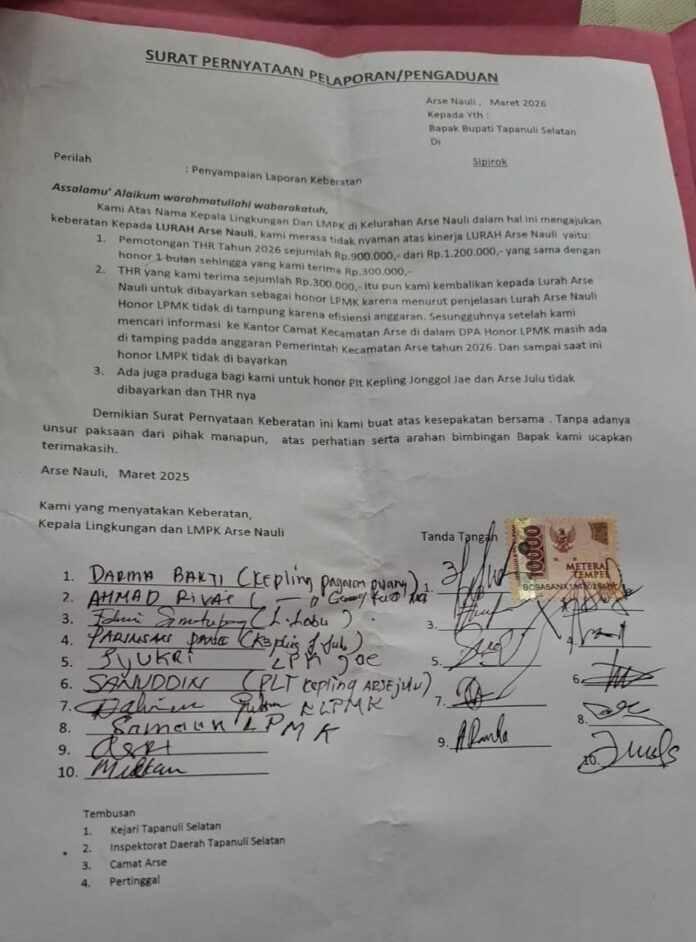 SURAT PERNYATAAN PELAPORAN/PENGADUAN
Arse Nauli , Maret 2026
Kepada Yth :
Bapak Bupati Tapanuli Selatan
Di
Sipirok
Perilah : Penyampaian Laporan Keberatan
Assalamu' Alaikum warahmatullahi wabarakatuh,
Kami Atas Nama Kepala Lingkungan Dan LMPK di Kelurahan Arse Nauli dalam hal ini mengajukan
keberatan Kepada LURAH Arse Nauli, kami merasa tidak nyaman atas kinerja LURAH Arse Nauli yaitu:
1. Pemotongan THR Tahun 2026 sejumlah Rp.900.000,- dari Rp.1.200.000,- yang sama dengan
honor 1 bulan sehingga yang kami terima Rp.300.000,-
2. THR yang kami terima sejumlah Rp.300.000,- itu pun kami kembalikan kepada Lurah Arse
Nauli untuk dibayarkan sebagai honor LPMK karena menurut penjelasan Lurah Arse Nauli
Honor LPMK tidak di tampung karena efisiensi anggaran. Sesungguhnya setelah kami
mencari informasi ke Kantor Camat Kecamatan Arse di dalam DPA Honor LPMK masih ada
di tamping padda anggaran Pemerintah Kecamatan Arse tahun 2026. Dan sampai saat ini
honor LMPK tidak di bayarkan
3. Ada juga praduga bagi kami untuk honor Plt Kepling Jonggol Jae dan Arse Julu tidak
dibayarkan dan THR nya
Demikian Surat Pernyataan Keberatan ini kami buat atas kesepakatan bersama . Tanpa adanya
unsur paksaan dari pihak manapun, atas perhatian serta arahan bimbingan Bapak kami ucapkan
terimakasih.
Arse Nauli, Maret 2025
Kami yang menyatakan Keberatan,
Kepala Lingkungan dan LMPK Arse Nauli
Tanda Tangan
10000
METERAI
TEMPEL
1. DARMA BAKTI (Kepling
2. AHMAD
3.
4.
5. SYUKRI LPM Jae
6. SANUDDIN (PLT Kepling ARSE julu)
7. LPMK
8. Samaun LPMK
9.
10.
1.
3.
4.
5.
6.
7.
8.
9.
10.
Tembusan
1. Kejari Tapanuli Selatan
2. Inspektorat Daerah Tapanuli Selatan
3. Camat Arse
4. Pertinggal